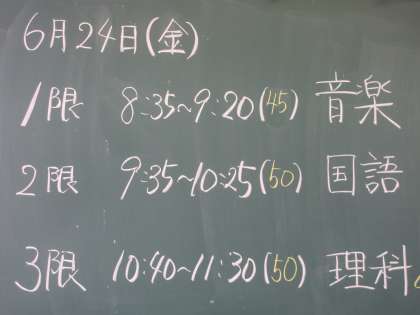 6月24日(金)
1限 8:35~9:20(45) 音楽
2限 9:35~10:25(50) 国語
3限 10:40~11:30(50) 理科